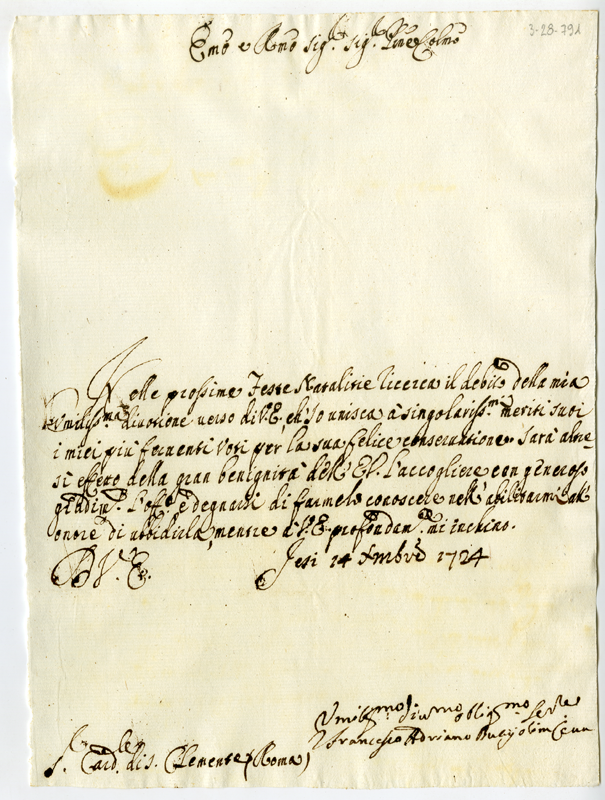 3-28-791
Emo e Rmo Sigr. Sigr. Pne Colmo
Nelle prossime Feste Natalitie ricerca il debito della mia
umiliss.ma divotione verso di V.E. ch'Io unisca à singolariss.mi meriti suoi
i miei più ferventi Voti per la sua felice conservatione. Sarà altre=
sì effetto della gran benignità dell' E.V. l'accogliere con generoso
gradim.to l'off.o e degnarsi di farmelo conoscere nell' abilitarmi all'
onore di ubbidirla, mentre à V.E. profondam.te mi inchino.
D V. E. Jesi 14 Xmbre 1724
Umiliss.mo Divmo obligmo Serre
Francesco Adriano
S.r Card.le di S. Clemente (Roma)